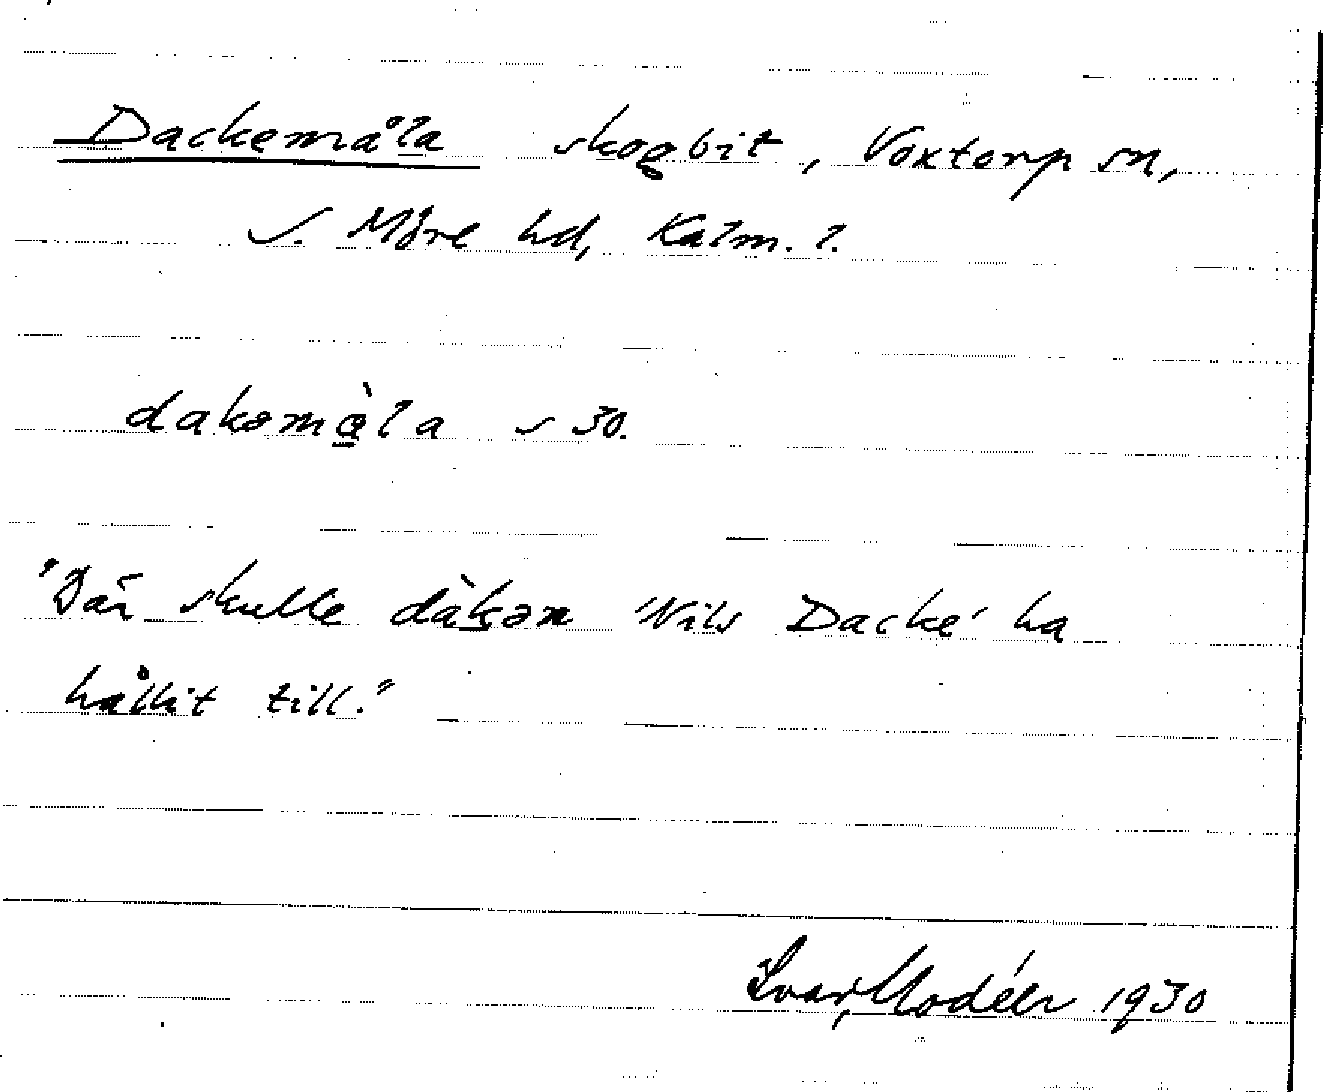 Dackemåla skogbit, Voxtorp sn,
S. Möre hd, Kalm. l.
dakəmàla s 30.
"Där skulle dàkən 'Nils Dacke' ha
hållit till."
Ivar Modéer 1930